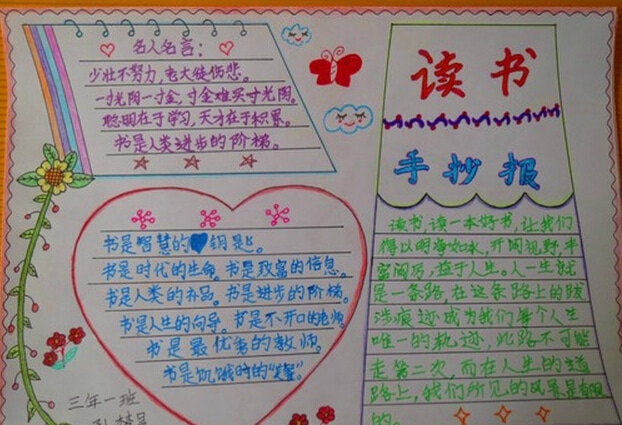 名人名言：
少壮不努力，老大徒伤悲。
一寸光阴一寸金，寸金难买寸光阴。
聪明在于学习，天才在于积累。
书是人类进步的阶梯。
书是智慧的钥匙。
书是时代的生命。书是致富的信息。
书是人类的补品。书是进步的阶梯。
书是人生的向导。书是不开口的老师。
书是最优秀的教师。
书是饥饿时的
三年一班
读书
手抄报
读书，读一本好书，让我们
得以明净如水，开阔视野，丰
富阅历，益于人生。人一生就
是一条路，在这条路上的跋
涉痕迹成为我们每个人生
唯一的轨迹，此路不可能
走第二次，而在人生的道
路上，我们所见的风景是有限
的。